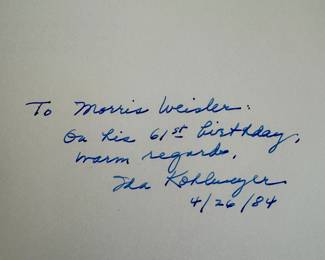 To Morris Weisler:
On his 61st birthday,
Warm regards,
Ida Kohlmeyer
4/26/84